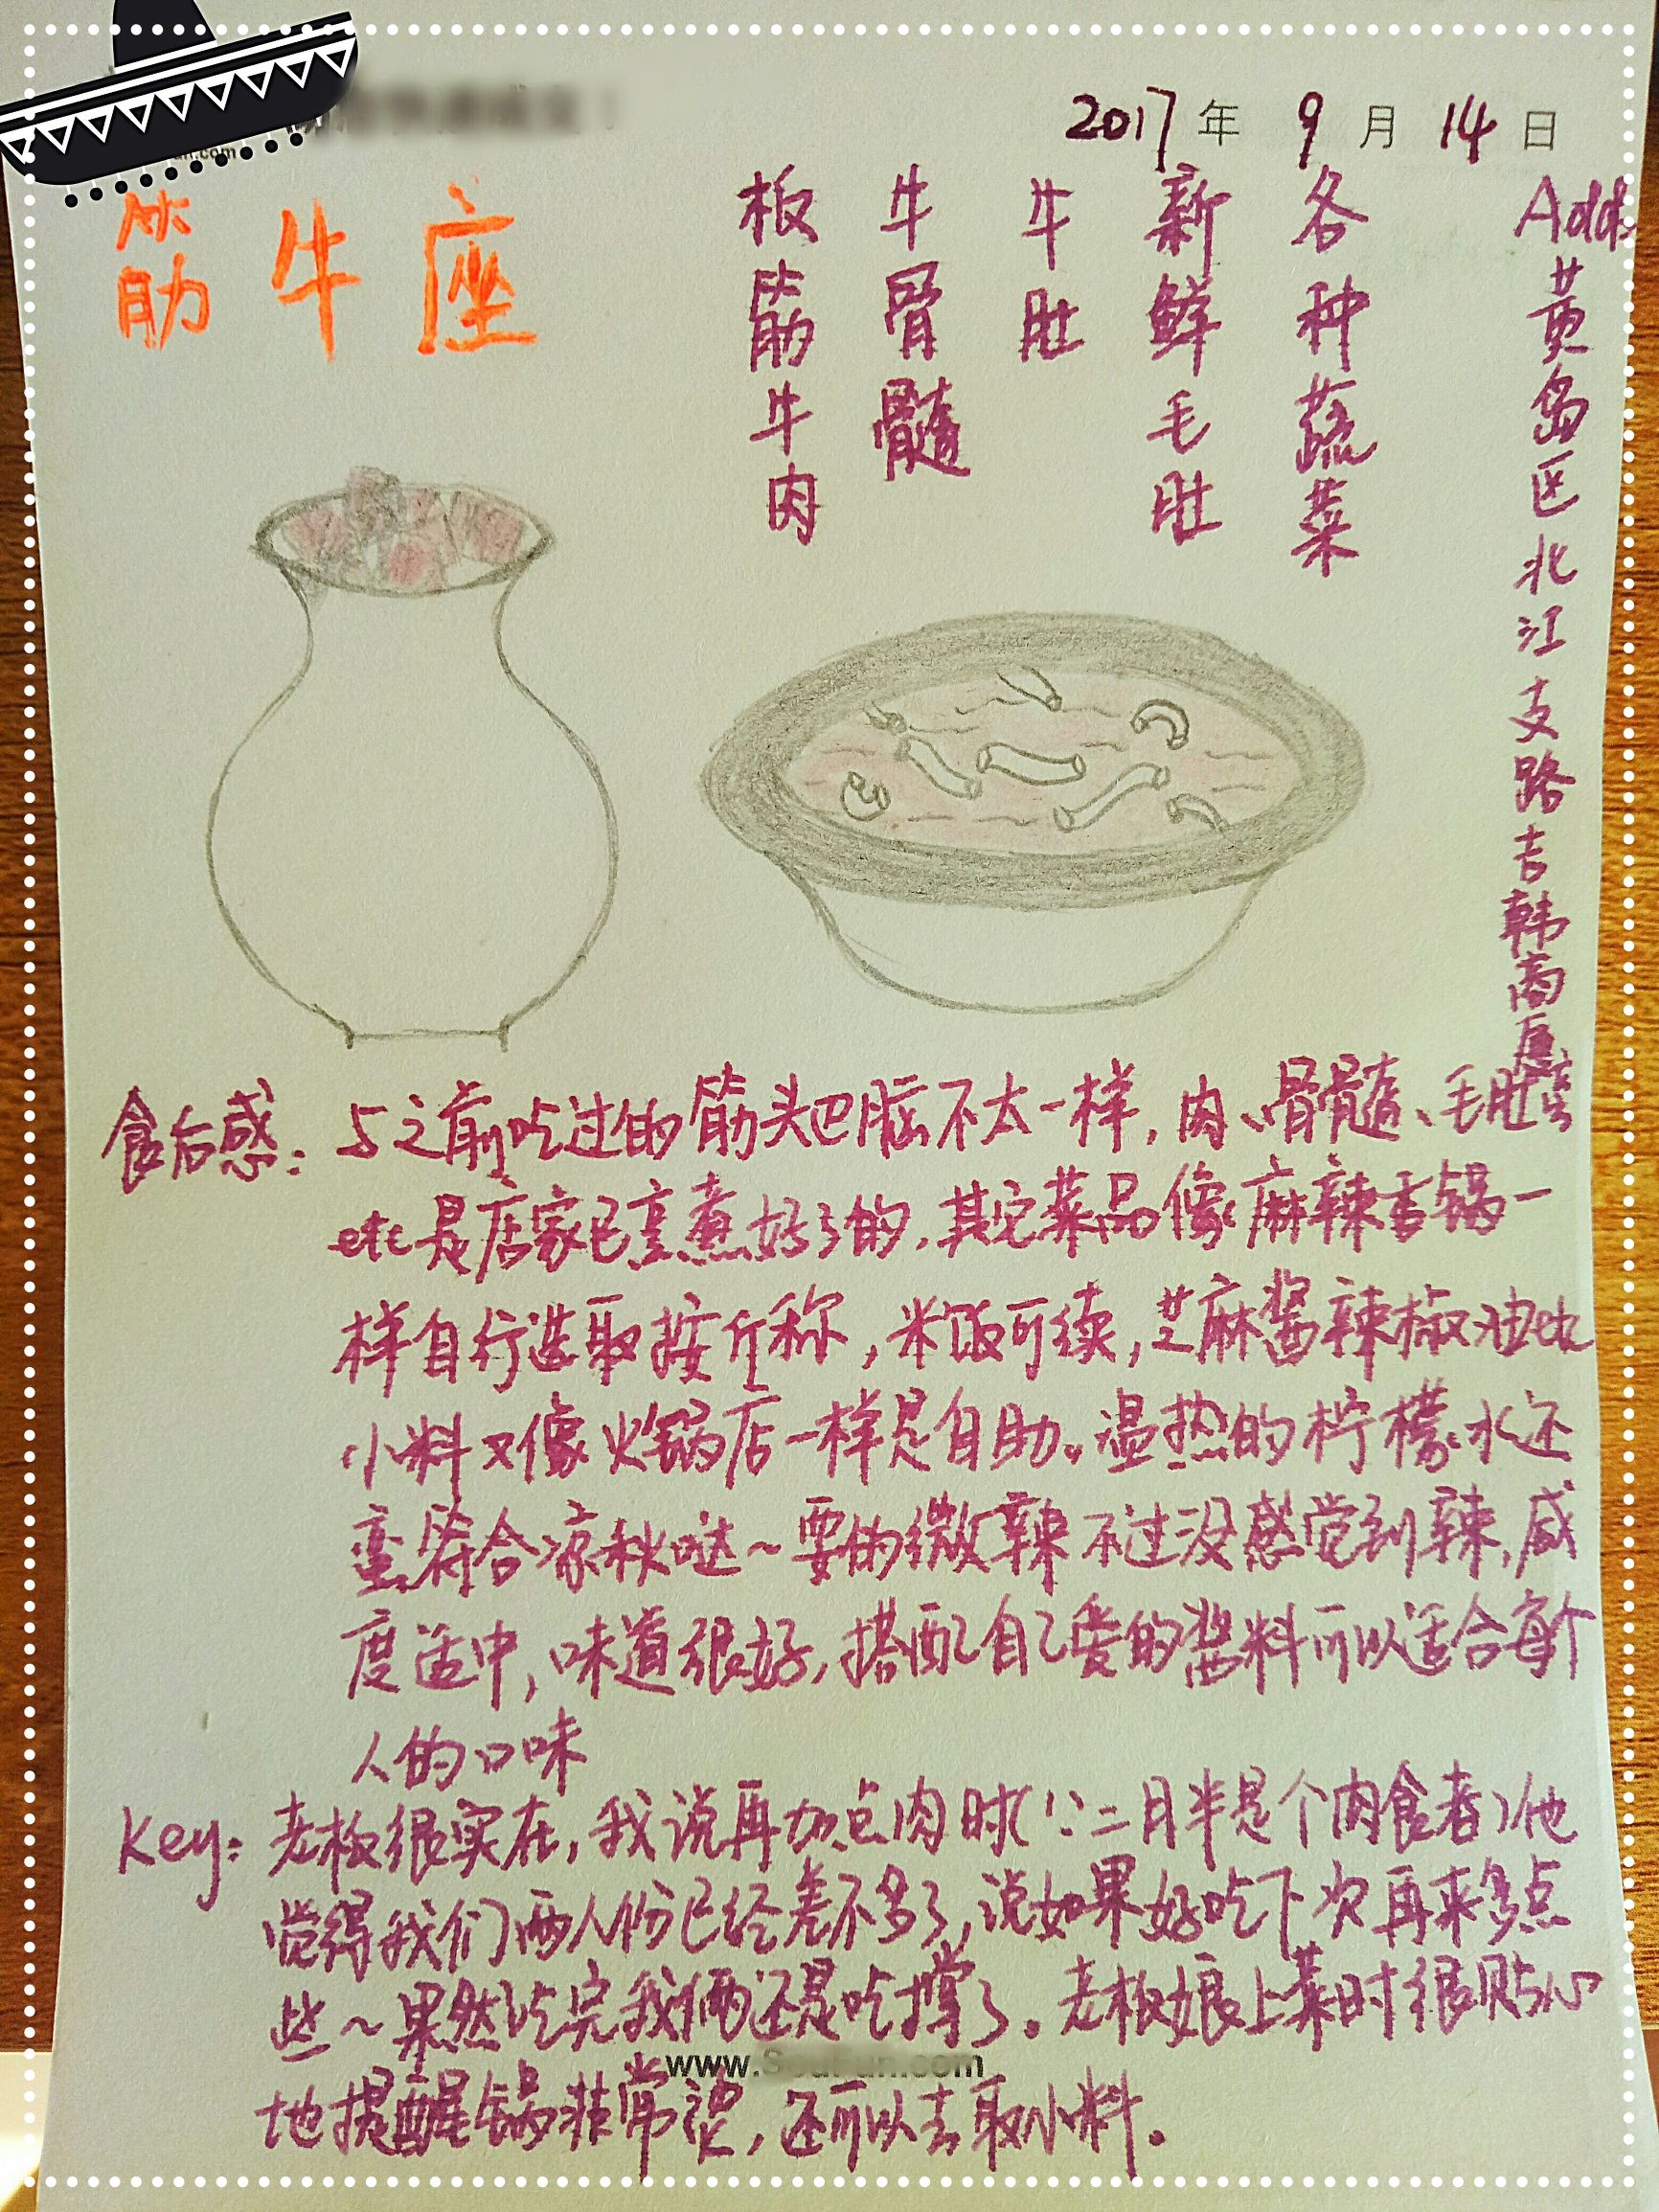 2017年 9月 14日
筋牛座
板筋牛肉
牛骨髓
牛肚
新鲜毛肚
各种蔬菜
Add:黄岛区北江支路吉韩商厦
食后感：与之前吃过的筋头巴脑不太一样，肉、骨髓、毛肚
etc是店家已烹煮好了的，其它菜品像麻辣香锅一
样自行选取按斤称，米饭可续，芝麻酱辣椒油etc
小料又像火锅店一样是自助。温热的柠檬水还
蛮符合凉秋哒~要的微辣不过没感觉到辣，咸
度适中，味道很好，搭配自己爱的酱料可以适合每个
人的口味
Key：老板很实在，我说再加点肉时(∵二月半是个肉食者)他
觉得我们两人份已经差不多了，说如果好吃下次再来多点
些~果然吃完我俩还是吃撑了。老板娘上菜时很贴心
地提醒锅非常烫，还可以去取小料。
www.SouFun.com